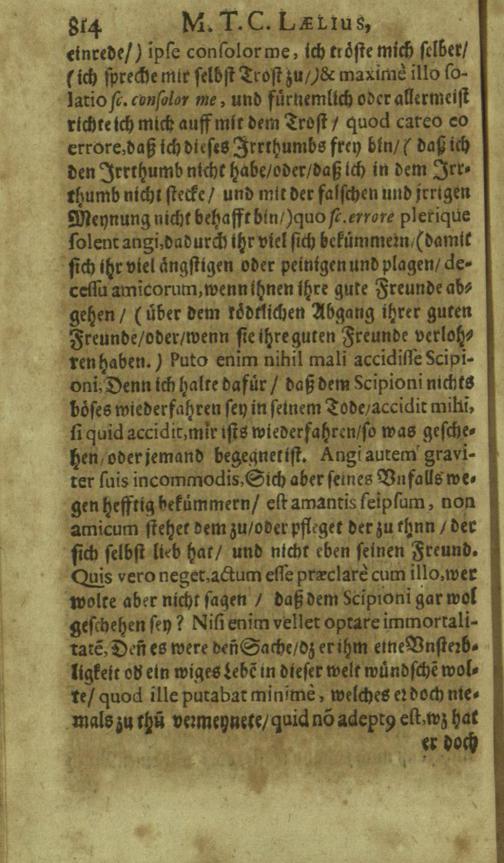 814 M. T. C. LÆLIUS,
einrede/) ipse consolor me, ich tröste mich selber/
(ich spreche mir selbst Trost zu/)& maximè illo so-
latio sc. consolor me, und fürnemlich oder allermeist
richte ich mich auff mit dem Trost/ quod careo eo
errore, daß ich dieses Irrthumbs frey bin/(daß ich
den Irrthumb nicht habe/oder/daß ich in dem Irr-
thumb nicht stecke/ und mit der falschen und jrrigen
Meynung nicht behafft bin/)quo sc. errore plerique
solent angi, dadurch ihr viel sich bekümmern/(damit
sich ihr viel ängstigen oder peinigen und plagen/ de-
cessu amicorum, wenn ihnen ihre gute Freunde ab-
gehen/ (über dem tödtlichen Abgang ihrer guten
Freunde/oder/wenn sie ihre guten Freunde verloh-
ren haben.) Puto enim nihil mali accidisse Scipi-
oni, Denn ich halte dafür/ daß dem Scipioni nichts
böses wiederfahren sey in seinem Tode/accidit mihi,
si quid accidit, mir ists wiederfahren/so was gesche-
hen/oder jemand begegnet ist. Angi autem gravi-
ter suis incommodis, Sich aber seines Vnfalls we-
gen hefftig bekümmern/ est amantis seipsum, non
amicum stehet dem zu/oder pfleget der zu thnn/der
sich selbst lieb hat/ und nicht eben seinen Freund.
Quis vero neget, actum esse præclarè cum illo, wer
wolte aber nicht sagen / daß dem Scipioni gar wol
geschehen sey? Nisi enim vellet optare immortali-
tatē, Deñ es were deñ Sache/dz er ihm eine Vnsterb-
ligkeit od ein wiges Lebē in dieser welt wündschē wol-
te/ quod ille putabat minimè, welches er doch nie-
mals zu thū vermeynete/quid nō adept9 est, wz hat
er doch